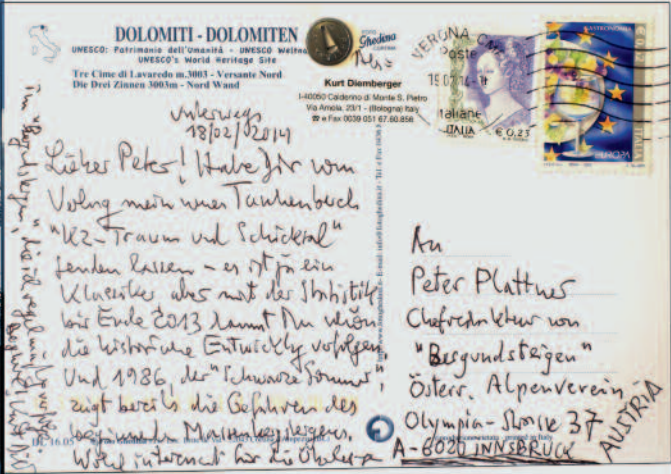 DOLOMITI - DOLOMITEN
UNESCO: Patrimonio dell'Umanità - UNESCO Weltna
UNESCO's World Heritage Site
Tre Cime di Lavaredo m.3003 - Versante Nord
Die Drei Zinnen 3003m - Nord Wand
FOTO
Ghedina
CORTINA
Kurt Diemberger
I-40050 Calderino di Monte S. Pietro
Via Amola, 23/1 - (Bologna) Italy
☎ e Fax 0039 051 67.60.856
VERONA C
Poste
Italiane
ITALIA
€ 0,23
GASTRONOMIA
ITALIA
EUROPA
unterwegs
18/02/2014
Lieber Peter! Habe Dir vom
Verlag mein neues Taschenbuch
"K2-Traum und Schicksal"
senden lassen - es ist ja ein
Klassiker aber mit der Statistik
bis Ende 2013 kannst Du schön
die historische Entwicklg verfolgen
Und 1986, der "Schwarze Sommer",
zeigt bereits die Gefahren des
beginnenden Massenbergsteigens.
Wohl interessant für
An
Peter Plattner
Chefredakteur von
"Bergundsteigen"
Österr. Alpenverein
Olympia-Strasse 37
A-6020 INNSBRUCK
AUSTRIA
printed in Italy